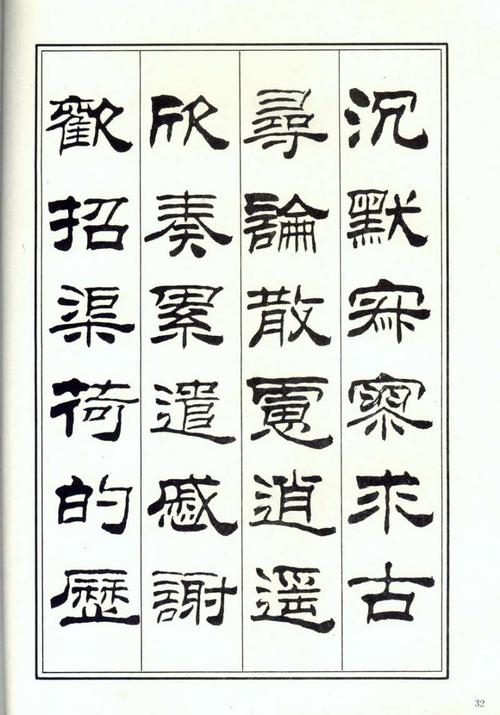 沉默寂寥求古
尋論散慮逍遥
欣奏累遣慼謝
歡招渠荷的歷
32